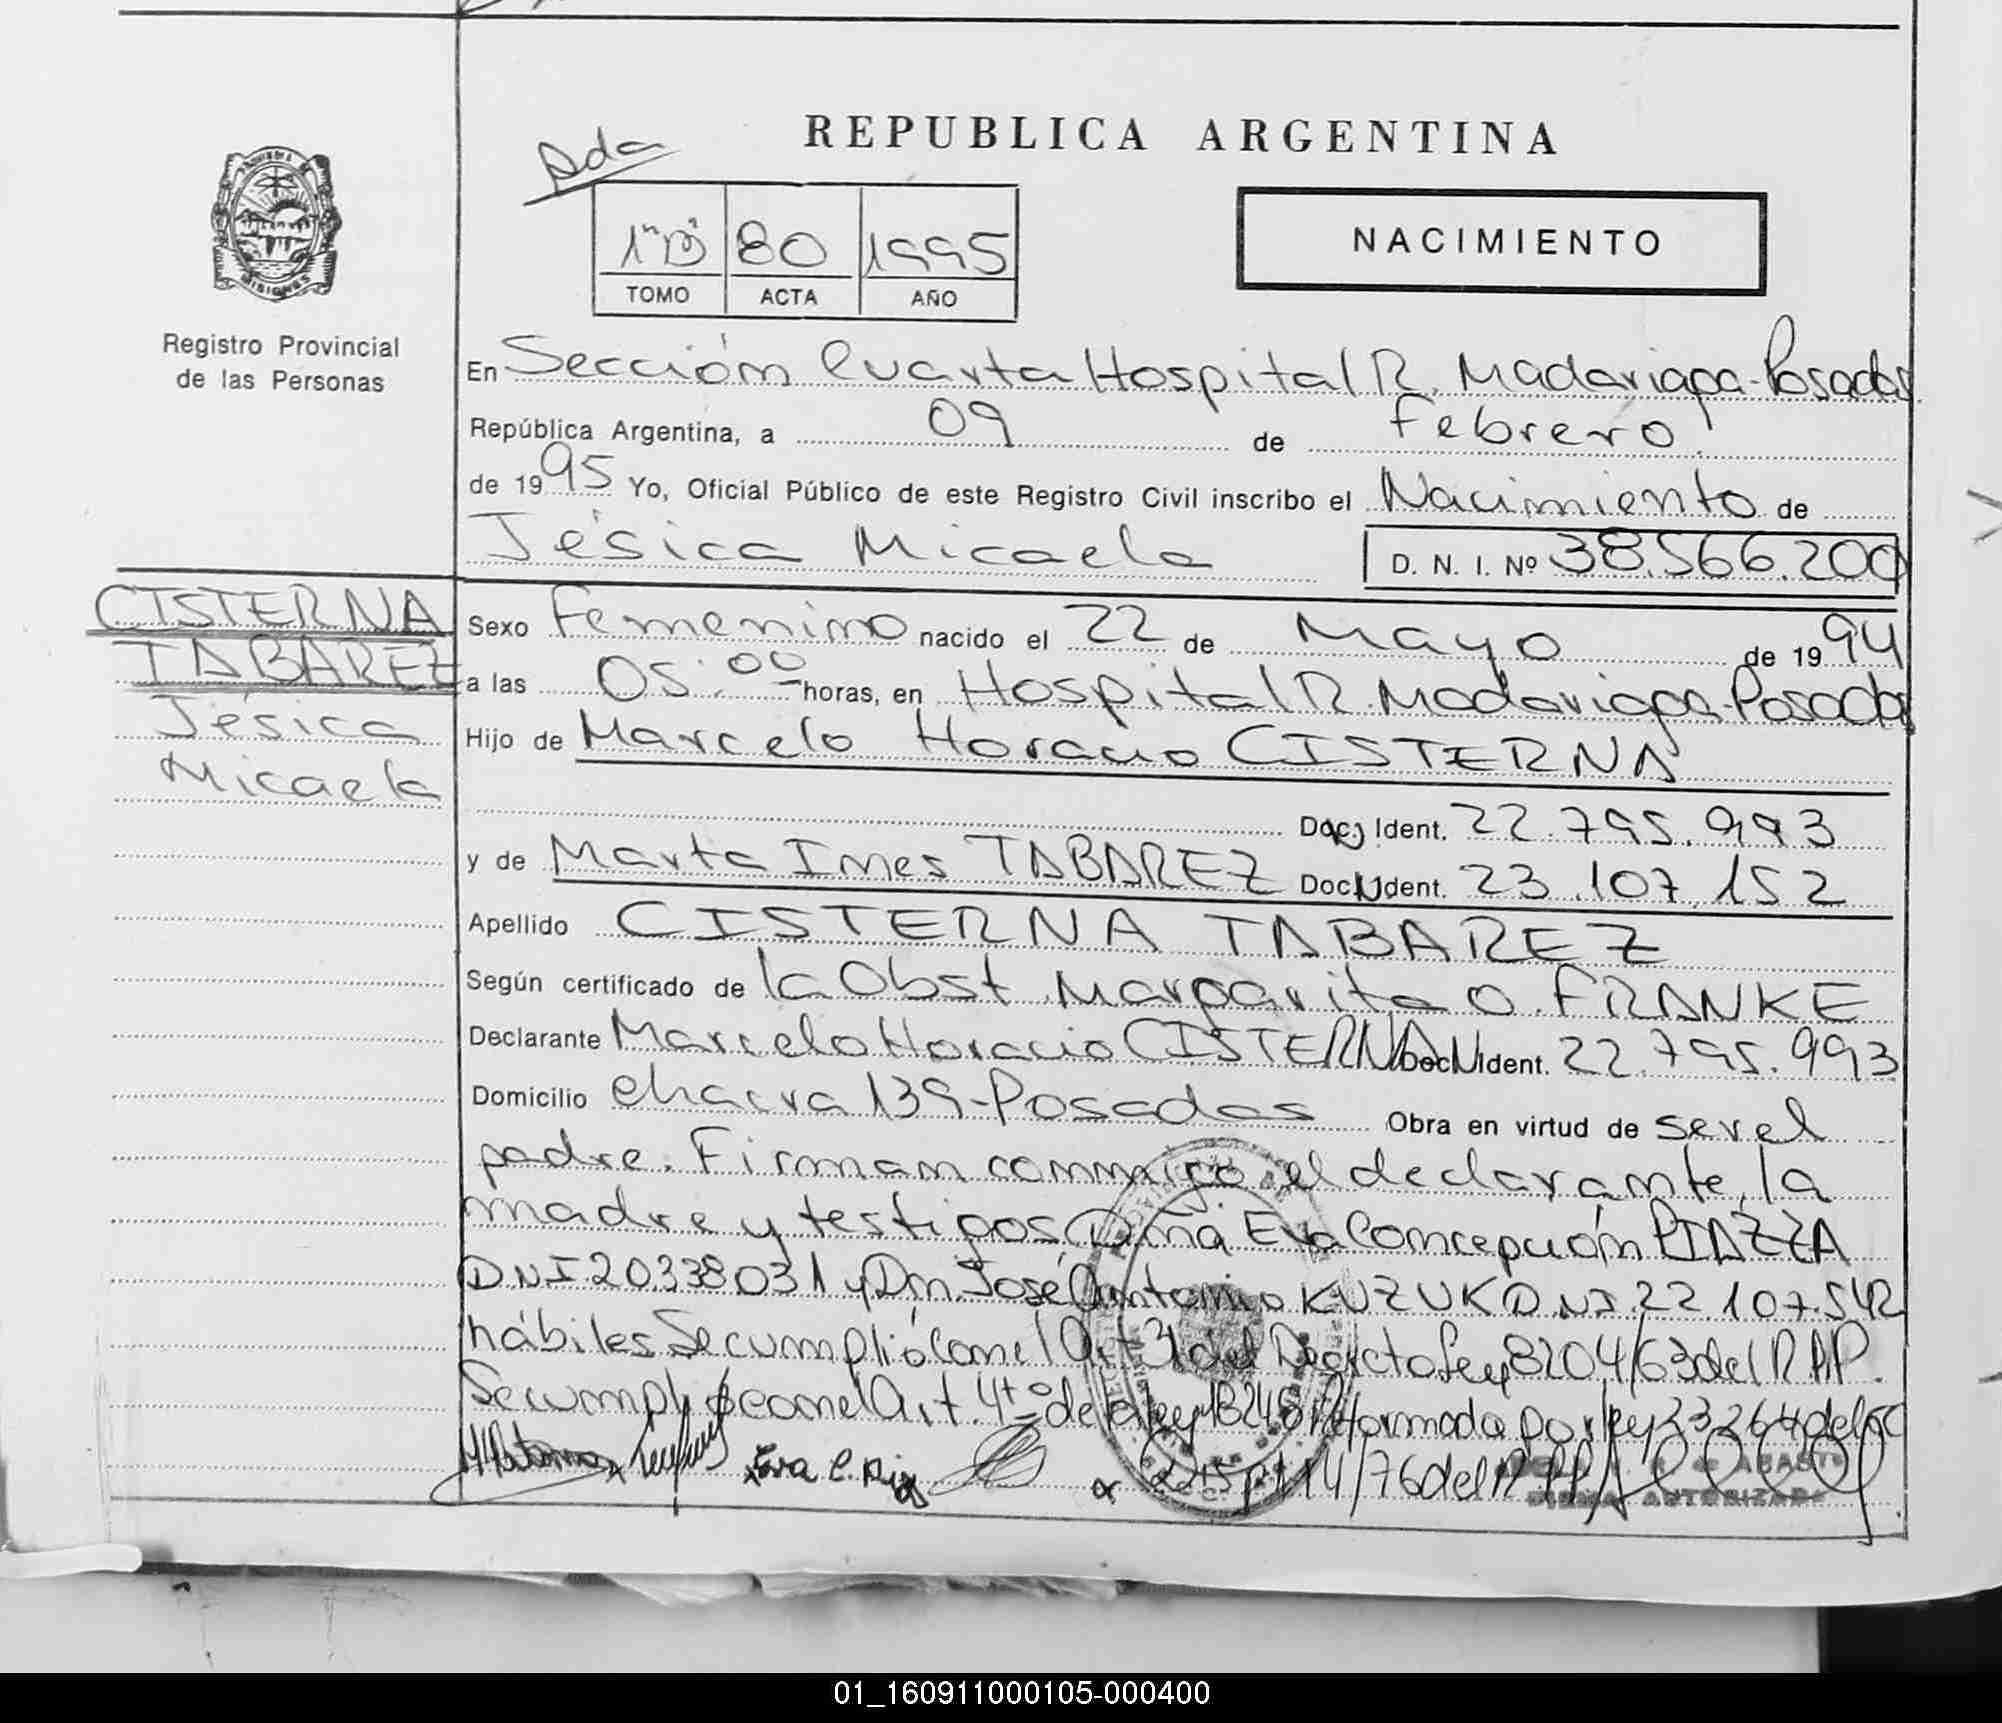 REPUBLICA ARGENTINA
Ada
1"B" 80 1995
TOMO ACTA AÑO
NACIMIENTO
MISIONES
Registro Provincial
de las Personas
En Sección Cuarta Hospital R. Madariaga-Posadas
República Argentina, a 09 de Febrero
de 1995 Yo, Oficial Público de este Registro Civil inscribo el Nacimiento de
Jésica Micaela D. N. I. Nº 38.566.200
CISTERNA
TABAREZ
Jésica
Micaela
Sexo Femenino nacido el 22 de Mayo de 1994
a las 05:00 horas, en Hospital R. Madariaga-Posadas
Hijo de Marcelo Horacio CISTERNA
Doc. Ident. 22.795.993
y de Marta Ines TABAREZ Doc. Ident. 23.107.152
Apellido CISTERNA TABAREZ
Según certificado de la Obst Margarita O. FRANKE
Declarante Marcelo Horacio CISTERNA Doc. Ident. 22.795.993
Domicilio Chacra 139-Posadas Obra en virtud de ser el
padre. Firman conmigo el declarante, la
madre y testigos Dña Eva Concepción PIAZZA
DNI 20.338.031 y Dn. José Antonio KUZUK D.N.I. 22.107.542
hábiles Se cumplió con el Art 31 del Decreto Ley 8204/63 del R.P.P.
Se cumplió con el Art. 4to de la ley 18248 Reformada por ley 23264 del
Eva C.
2215 14/76 del R.P.P.
FIRMA AUTORIZADA
01_160911000105-000400